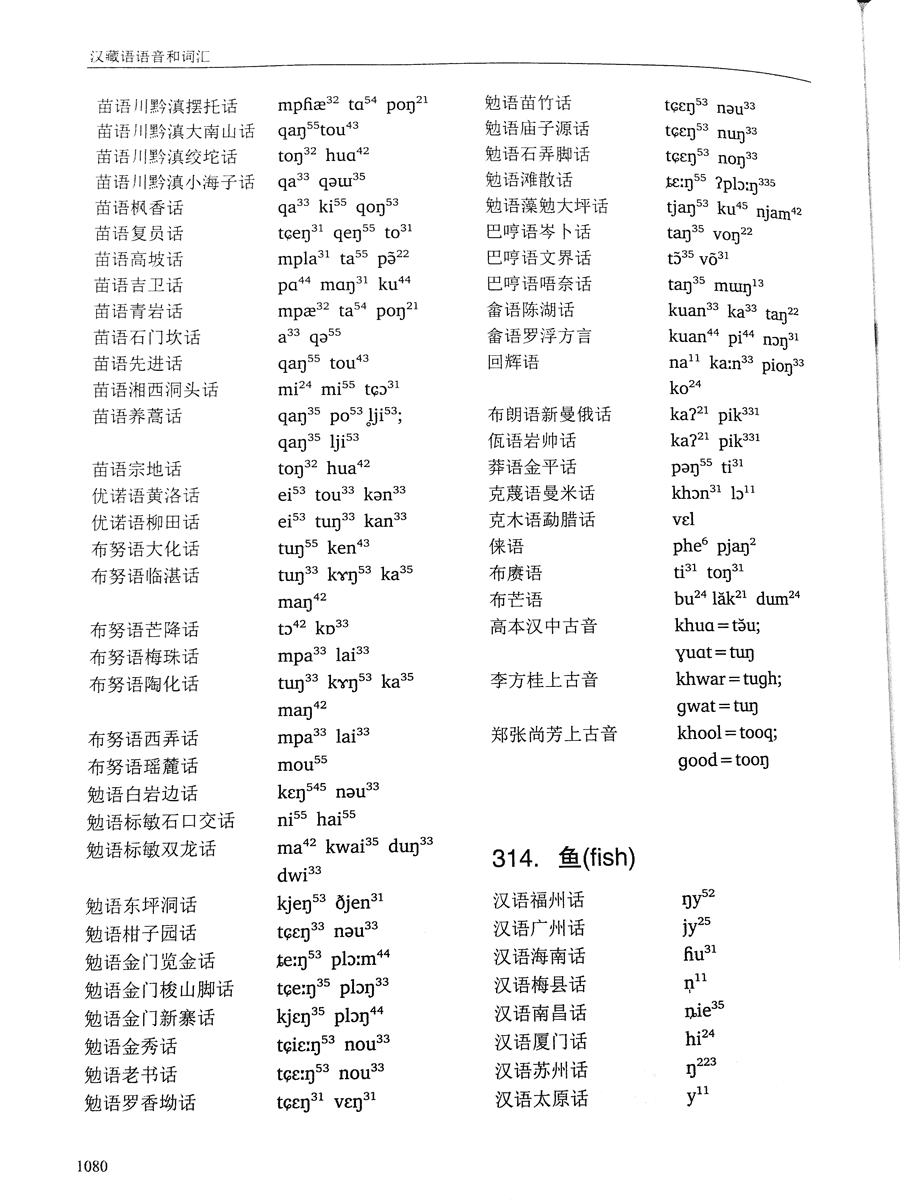 汉藏语语音和词汇
苗语川黔滇摆托话 mpɦæ³² tɑ⁵⁴ poŋ²¹
苗语川黔滇大南山话 qaŋ⁵⁵tou⁴³
苗语川黔滇绞坨话 toŋ³² huɑ⁴²
苗语川黔滇小海子话 qa³³ qəɯ³⁵
苗语枫香话 qa³³ ki⁵⁵ qoŋ⁵³
苗语复员话 tɕeŋ³¹ qeŋ⁵⁵ to³¹
苗语高坡话 mpla³¹ ta⁵⁵ pə̃²²
苗语吉卫话 pɑ⁴⁴ mɑŋ³¹ ku⁴⁴
苗语青岩话 mpæ³² ta⁵⁴ poŋ²¹
苗语石门坎话 a³³ qə⁵⁵
苗语先进话 qaŋ⁵⁵ tou⁴³
苗语湘西洞头话 mi²⁴ mi⁵⁵ tɕɔ³¹
苗语养蒿话 qaŋ³⁵ po⁵³ l̥ji⁵³;
qaŋ³⁵ lji⁵³
苗语宗地话 toŋ³² hua⁴²
优诺语黄洛话 ei⁵³ tou³³ kən³³
优诺语柳田话 ei⁵³ tuŋ³³ kan³³
布努语大化话 tuŋ⁵⁵ ken⁴³
布努语临湛话 tuŋ³³ kɤŋ⁵³ ka³⁵
maŋ⁴²
布努语芒降话 tɔ⁴² kɒ³³
布努语梅珠话 mpa³³ lai³³
布努语陶化话 tuŋ³³ kɤŋ⁵³ ka³⁵
maŋ⁴²
布努语西弄话 mpa³³ lai³³
布努语瑶麓话 mou⁵⁵
勉语白岩边话 kɛŋ⁵⁴⁵ nəu³³
勉语标敏石口交话 ni⁵⁵ hai⁵⁵
勉语标敏双龙话 ma⁴² kwai³⁵ duŋ³³
dwi³³
勉语东坪洞话 kjeŋ⁵³ ðjen³¹
勉语柑子园话 tɕɛŋ³³ nəu³³
勉语金门览金话 ȶeːŋ⁵³ plɔːm⁴⁴
勉语金门梭山脚话 tɕeːŋ³⁵ plɔŋ³³
勉语金门新寨话 kjɛŋ³⁵ plɔŋ⁴⁴
勉语金秀话 tɕiɛːŋ⁵³ nou³³
勉语老书话 tɕɛːŋ⁵³ nou³³
勉语罗香坳话 tɕɛŋ³¹ vɛŋ³¹
勉语苗竹话 tɕɛŋ⁵³ nəu³³
勉语庙子源话 tɕɛŋ⁵³ nuŋ³³
勉语石弄脚话 tɕɛŋ⁵³ noŋ³³
勉语滩散话 ȶɛːŋ⁵⁵ ʔplɔːŋ³³⁵
勉语藻勉大坪话 tjaŋ⁵³ ku⁴⁵ njam⁴²
巴哼语岑卜话 taŋ³⁵ voŋ²²
巴哼语文界话 tɔ̃³⁵ võ³¹
巴哼语唔奈话 taŋ³⁵ mɯŋ¹³
畲语陈湖话 kuan³³ ka³³ taŋ²²
畲语罗浮方言 kuan⁴⁴ pi⁴⁴ nɔŋ³¹
回辉语 na¹¹ kaːn³³ pioŋ³³
ko²⁴
布朗语新曼俄话 kaʔ²¹ pik³³¹
佤语岩帅话 kaʔ²¹ pik³³¹
莽语金平话 pəŋ⁵⁵ ti³¹
克蔑语曼米话 khɔn³¹ lɔ¹¹
克木语勐腊话 vɛl
俫语 phe⁶ pjaŋ²
布赓语 ti³¹ toŋ³¹
布芒语 bu²⁴ lăk²¹ dum²⁴
高本汉中古音 khuɑ＝tə̆u;
ɣuɑt＝tuŋ
李方桂上古音 khwar＝tugh;
gwat＝tuŋ
郑张尚芳上古音 khool＝tooq;
good＝tooŋ
314. 鱼(fish)
汉语福州话 ŋy⁵²
汉语广州话 jy²⁵
汉语海南话 ɦu³¹
汉语梅县话 n̩¹¹
汉语南昌话 ȵie³⁵
汉语厦门话 hi²⁴
汉语苏州话 ŋ²²³
汉语太原话 y¹¹
1080